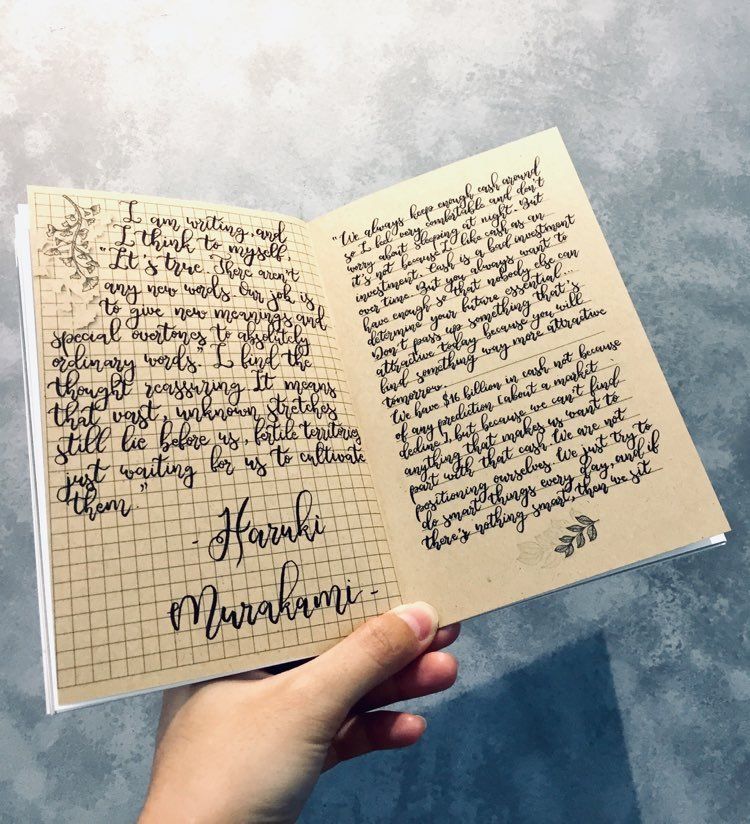 I am writing, and
I think to myself,
"It's true. There aren't
any new words. Our job is
to give new meanings and
special overtones to absolutely
ordinary words." I find the
thought reassuring. It means
that vast, unknown stretches
still lie before us, fertile territories
just waiting for us to cultivate
them."
- Haruki
Murakami -
"We always keep enough cash around
so I feel very comfortable and don't
worry about sleeping at night. But
it's not because I like cash as an
investment. Cash is a bad investment
over time. But you always want to
have enough so that nobody else can
determine your future essential...
Don't pass up something that's
attractive today because you will
find something way more attractive
tomorrow.
We have $16 billion in cash not because
of any predition [about a market
decline], but because we can't find
anything that makes us want to
part with that cash. We are not
positioning ourselves. We just try to
do smart things every day, and if
there's nothing smart, then we sit